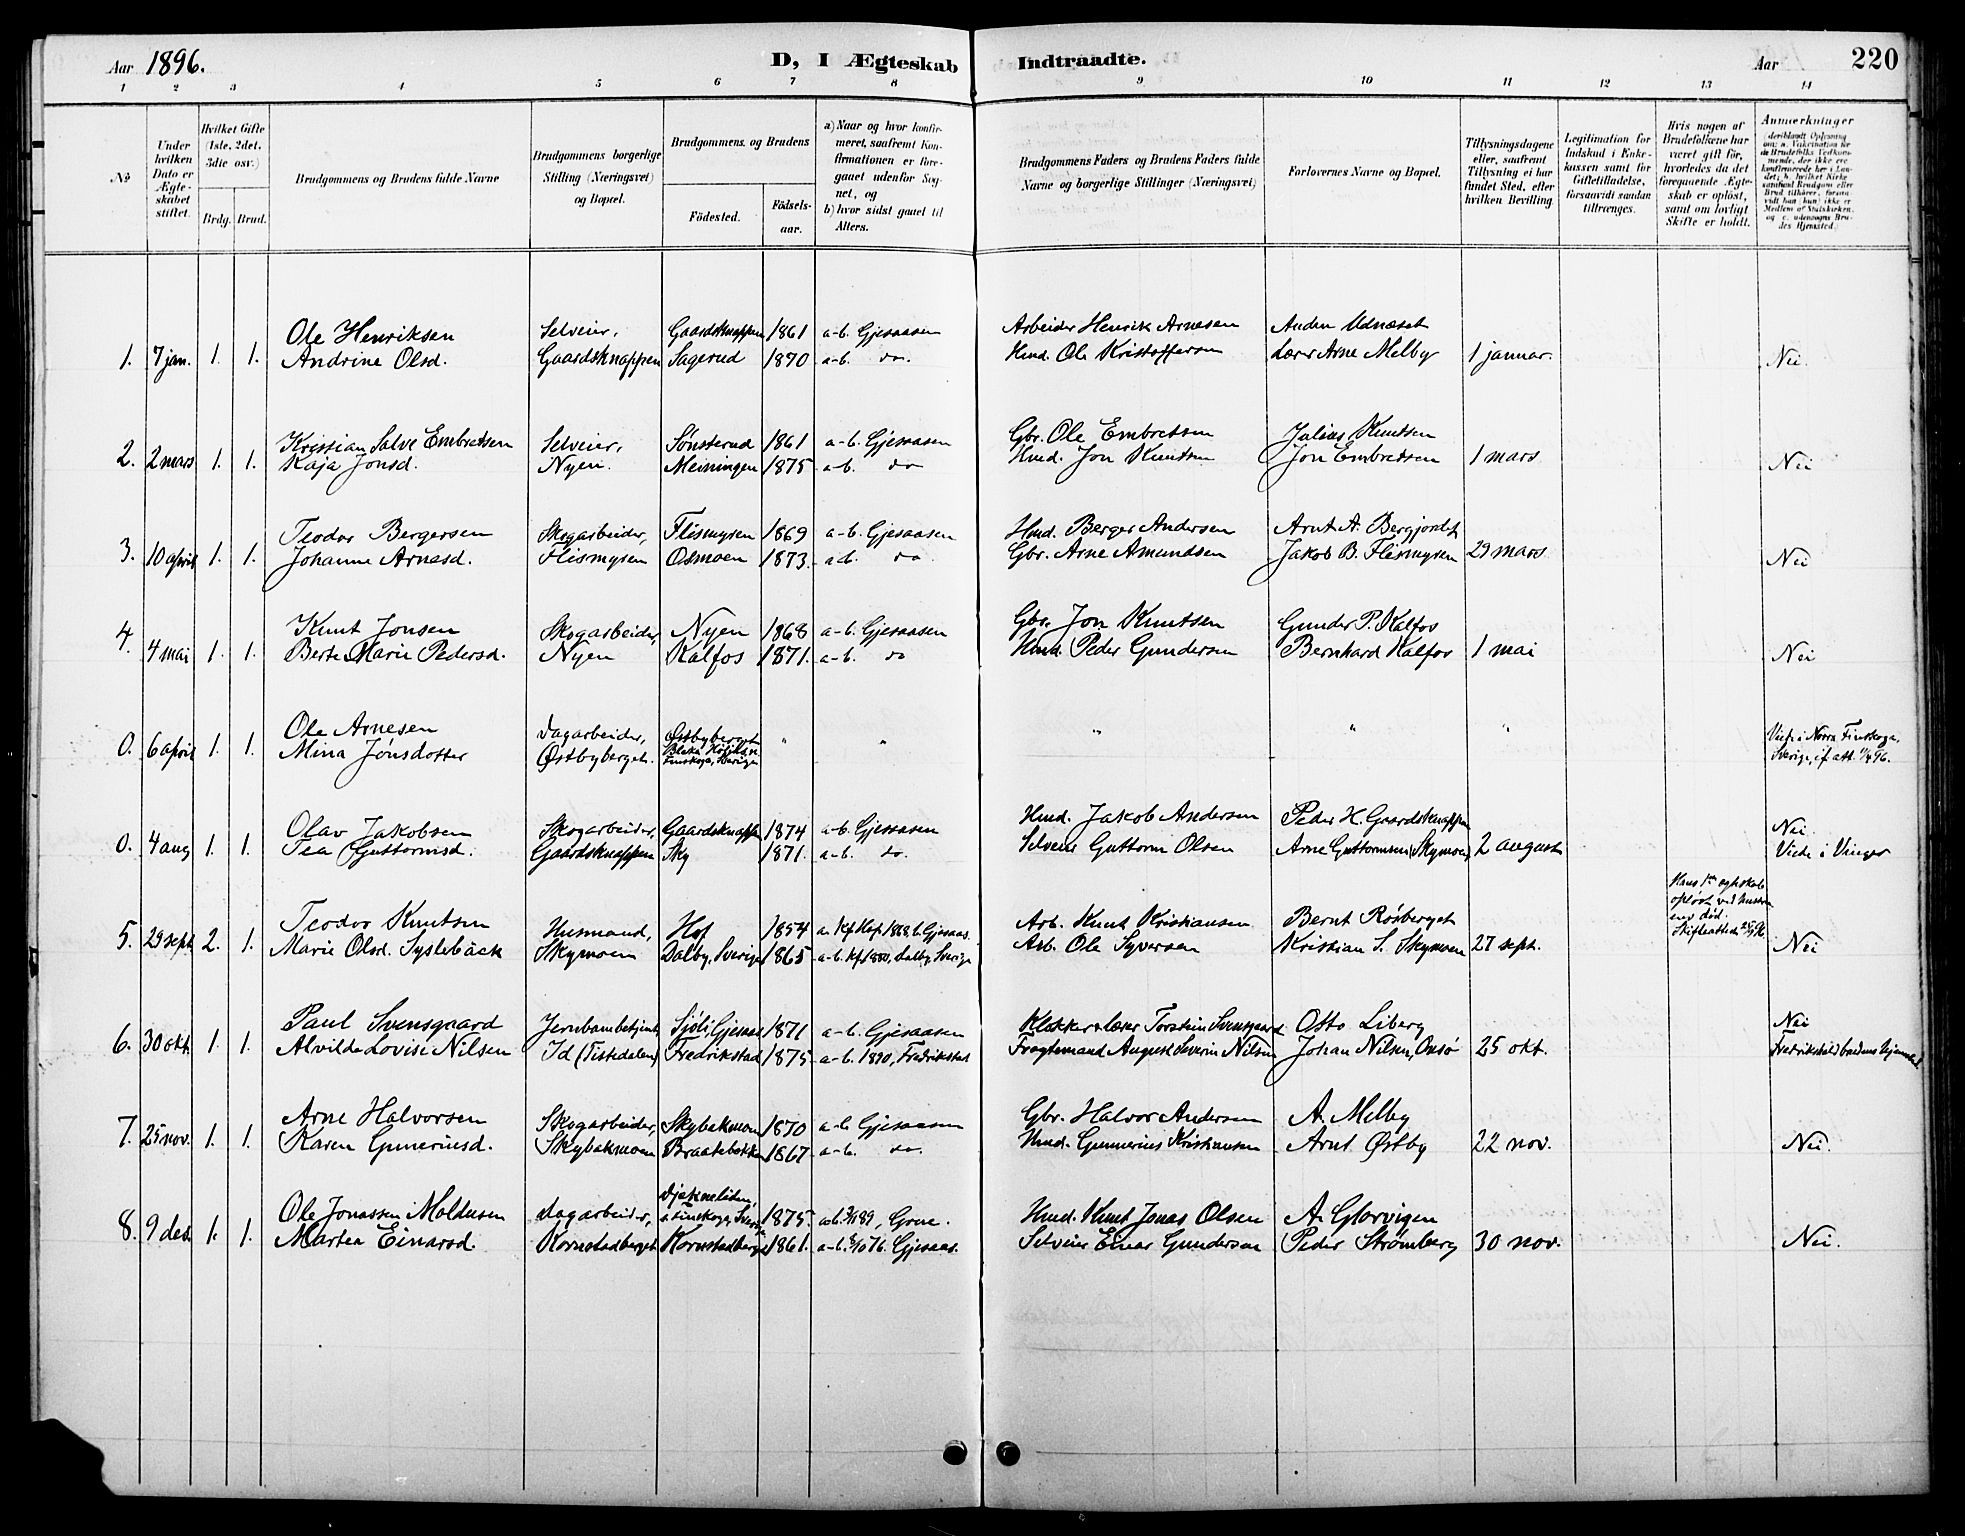 Aar 1896.
D, I Ægteskab Indtraadte.
Aar 220
1 2 3 4 5 6 7 8 9 10 11 12 13 14
No
Under hvilken Dato er Ægteskabet stiftet.
Hvilket Gifte (1ste, 2det, 3die osv.)
Brdg. Brud.
Brudgommens og Brudens fulde Navne
Brudgommens borgerlige Stilling (Næringsvei) og Bopæl.
Brudgommens og Brudens
Födested.
Födselsaar.
a) Naar og hvor konfirmeret, saafremt Konfirmationen er foregaaet udenfor Sognet, og
b) hvor sidst gaaet til Alters.
Brudgommens Faders og Brudens Faders fulde Navne og borgerlige Stillinger (Næringsvei)
Forlovernes Navne og Bopæl.
Tillysningsdagene eller, saafremt Tillysning ei har fundet Sted, efter hvilken Bevilling.
Legitimation for Indskud i Enkekassen samt for Giftetilladelse, forsaavidt saadan tiltrænges.
Hvis nogen af Brudefolkene har været gift för, hvorledes da det foregaaende Ægteskab er oplöst, samt om lovligt Skifte er holdt.
Anmerkninger
Ole Henriksen Selveier, Gaardsknappen 1861 a-b. Gjesaasen Arbeider Henrik Arnesen Anders Udnæset
1. 7 jan. 1. 1. Andrine Olsd. Gaardsknappen Sagerud 1870 a-b. do. Hmd. Ole Kristoffersen Lærer Arne Melby 1 januar. Nei.
Kristian Salve Embretsen Selveier, Sønsterud 1861 a-b. Gjesaasen Gbr. Ole Embretsen Julius Knutsen
2. 2 mars 1. 1. Kaja Jonsd. Nyen. Meiningen 1875 a-b. do Hmd. Jon Knutsen Jon Embretsen 1 mars Nei
Teodor Bergersen Skogarbeider, Flismyren 1869 a-b. Gjesaasen Hmd. Berger Andersen Arnt A. Bergjordet
3. 10 april 1. 1. Johanne Arnesd. Flismyren Osmoen 1873. a-b. do. Gbr. Arne Amundsen Jakob B. Flismyren 29 mars Nei
Knut Jonsen Skogarbeider, Nyen 1868 a-b. Gjesaasen Gbr. Jon Knutsen Gunder P. Kalfos
4. 4 mai 1. 1. Berte Marie Pedersd. Nyen Kalfos 1871. a-b. do Hmd. Peder Gundersen Bernhard Kalfos 1 mai Nei
Ole Arnesen Dagarbeider, Østbyberget
0. 6 april 1. 1. Mina Jonsdotter Østbyberget. Finskoga, Sverige " " " " "
Viede i Norra Finskoga,
Sverige, if. att.
Olav Jakobsen Skogarbeider, Gaardsknappen 1874 a-b. Gjesaasen Hmd. Jakob Andersen Peder H. Gaardsknappen Nei.
0. 4 aug 1. 1. Tea Guttormsd. Gaardsknappen Sky 1871. a-b. do. Selveier Guttorm Olsen Arne Guttormsen (Skymoen) 2 august Viede i Vinger
Hans 1ste egteskab
opløst ved hustruens død.
Teodor Knutsen Husmand, Hof 1854 a. Kf. Hof 1868, b. Gjesaas. Arb. Knut Kristiansen Bernt Rösberget Skifteattest
5. 29 sept. 2. 1. Marie Olsd. Syslebäck Skymoen Dalby, Sverige 1865 a-b. kf. 1880, Dalby, Sverige Arb. Ole Syversen Kristian S. Skymoen 27 sept. Nei
Paul Svensgaard Jernbanebetjent, Sjöli, Gjesaas 1871 a-b. Gjesaasen Klokker & lærer Torstein Svensgaard Otto Liberg Nei
6. 30 okt. 1. 1. Alvilde Lovise Nilsen Id (Tistedalen) Fredrikstad 1875 a-b. 1890, Fredrikstad Fragtemand August Severin Nilsen Johan Nilsen, Onsö 25 okt. Fredrikshald brudens hjemsted
Arne Halvorsen Skogarbeider, Skybakmoen 1870 a-b Gjesaasen Gbr. Halvor Andersen A. Melby
7. 25 nov. 1. 1. Karen Gunneriusd. Skybakmoen Braatebakken 1867 a-b. do. Hmd. Gunnerius Kristiansen Arnt Østby 22 nov. Nei.
Ole Jonassen Moldusen Dagarbeider, Djekneliden, Finskoga, Sverige 1875. a-b. Grue. Hmd. Knut Jonas Olsen A. Glorvigen
8. 9 des. 1. 1. Martea Einarsd. Kornstadberget Kornstadberget 1861. a-b. Gjesaas. Selveier Einar Gundersen Peder Strömberg 30 nov. Nei.